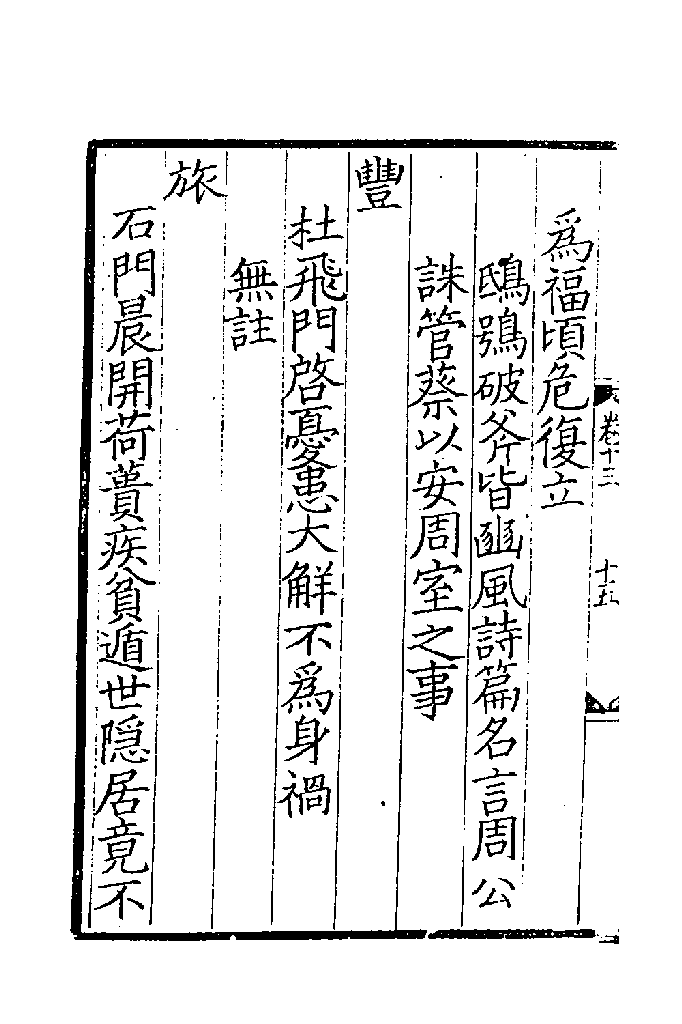 卷十三
十五
為福頃危復立
鴟鴞破斧皆豳風詩篇名言周公
誅管蔡以安周室之事
豐
杜飛門啓憂患大解不為身禍
無註
旅
石門晨開荷蕢疾貧遁世隠居竟不